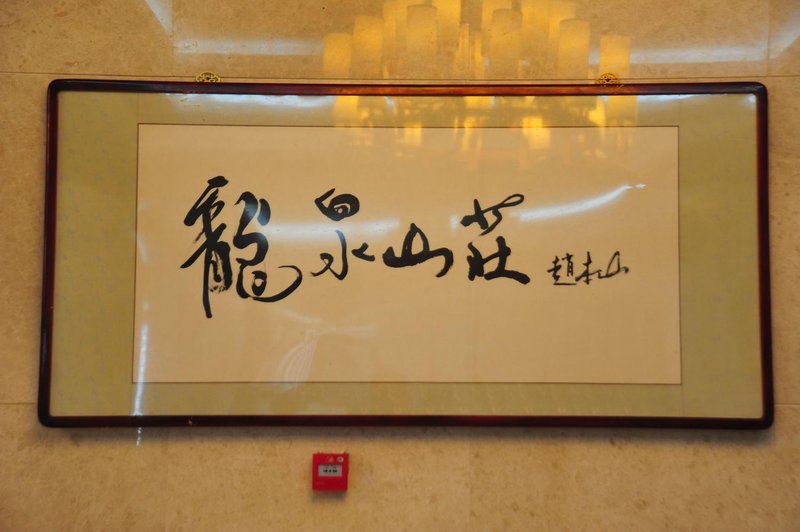 龍泉山莊 趙本山